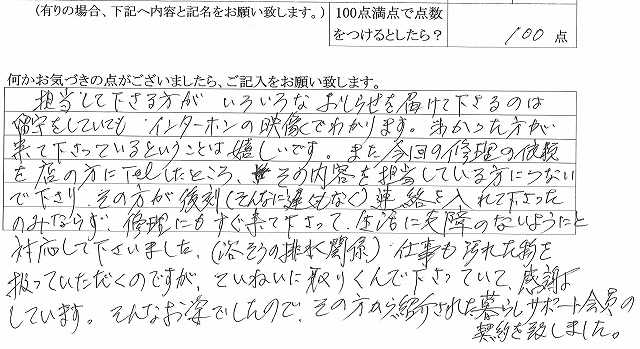 (有りの場合、下記へ内容と記名をお願い致します。)
100点満点で点数
をつけるとしたら?
100 点
何かお気づきの点がございましたら、ご記入をお願い致します。
担当して下さる方が いろいろな おしらせを届けて下さるのは
留守をしていても インターホンの映像でわかります。 方が
来て下さっているということは嬉しいです。また今回の修理の依頼
を店の方にTelしたところ、その内容を担当している方につない
で下さり、その方が後刻(そんなに遅くもなく)連絡を入れて下さった
のみならず、修理にもすぐ来て下さって、生活に支障のないようにと
対応して下さいました。(浴そうの排水関係) 仕事も汚れた物を
扱っていただくのですが、ていねいに取りくんで下さっていて、感謝
しています。そんなお姿でしたので、その方から紹介された暮らしサポート会員の
契約を致しました。